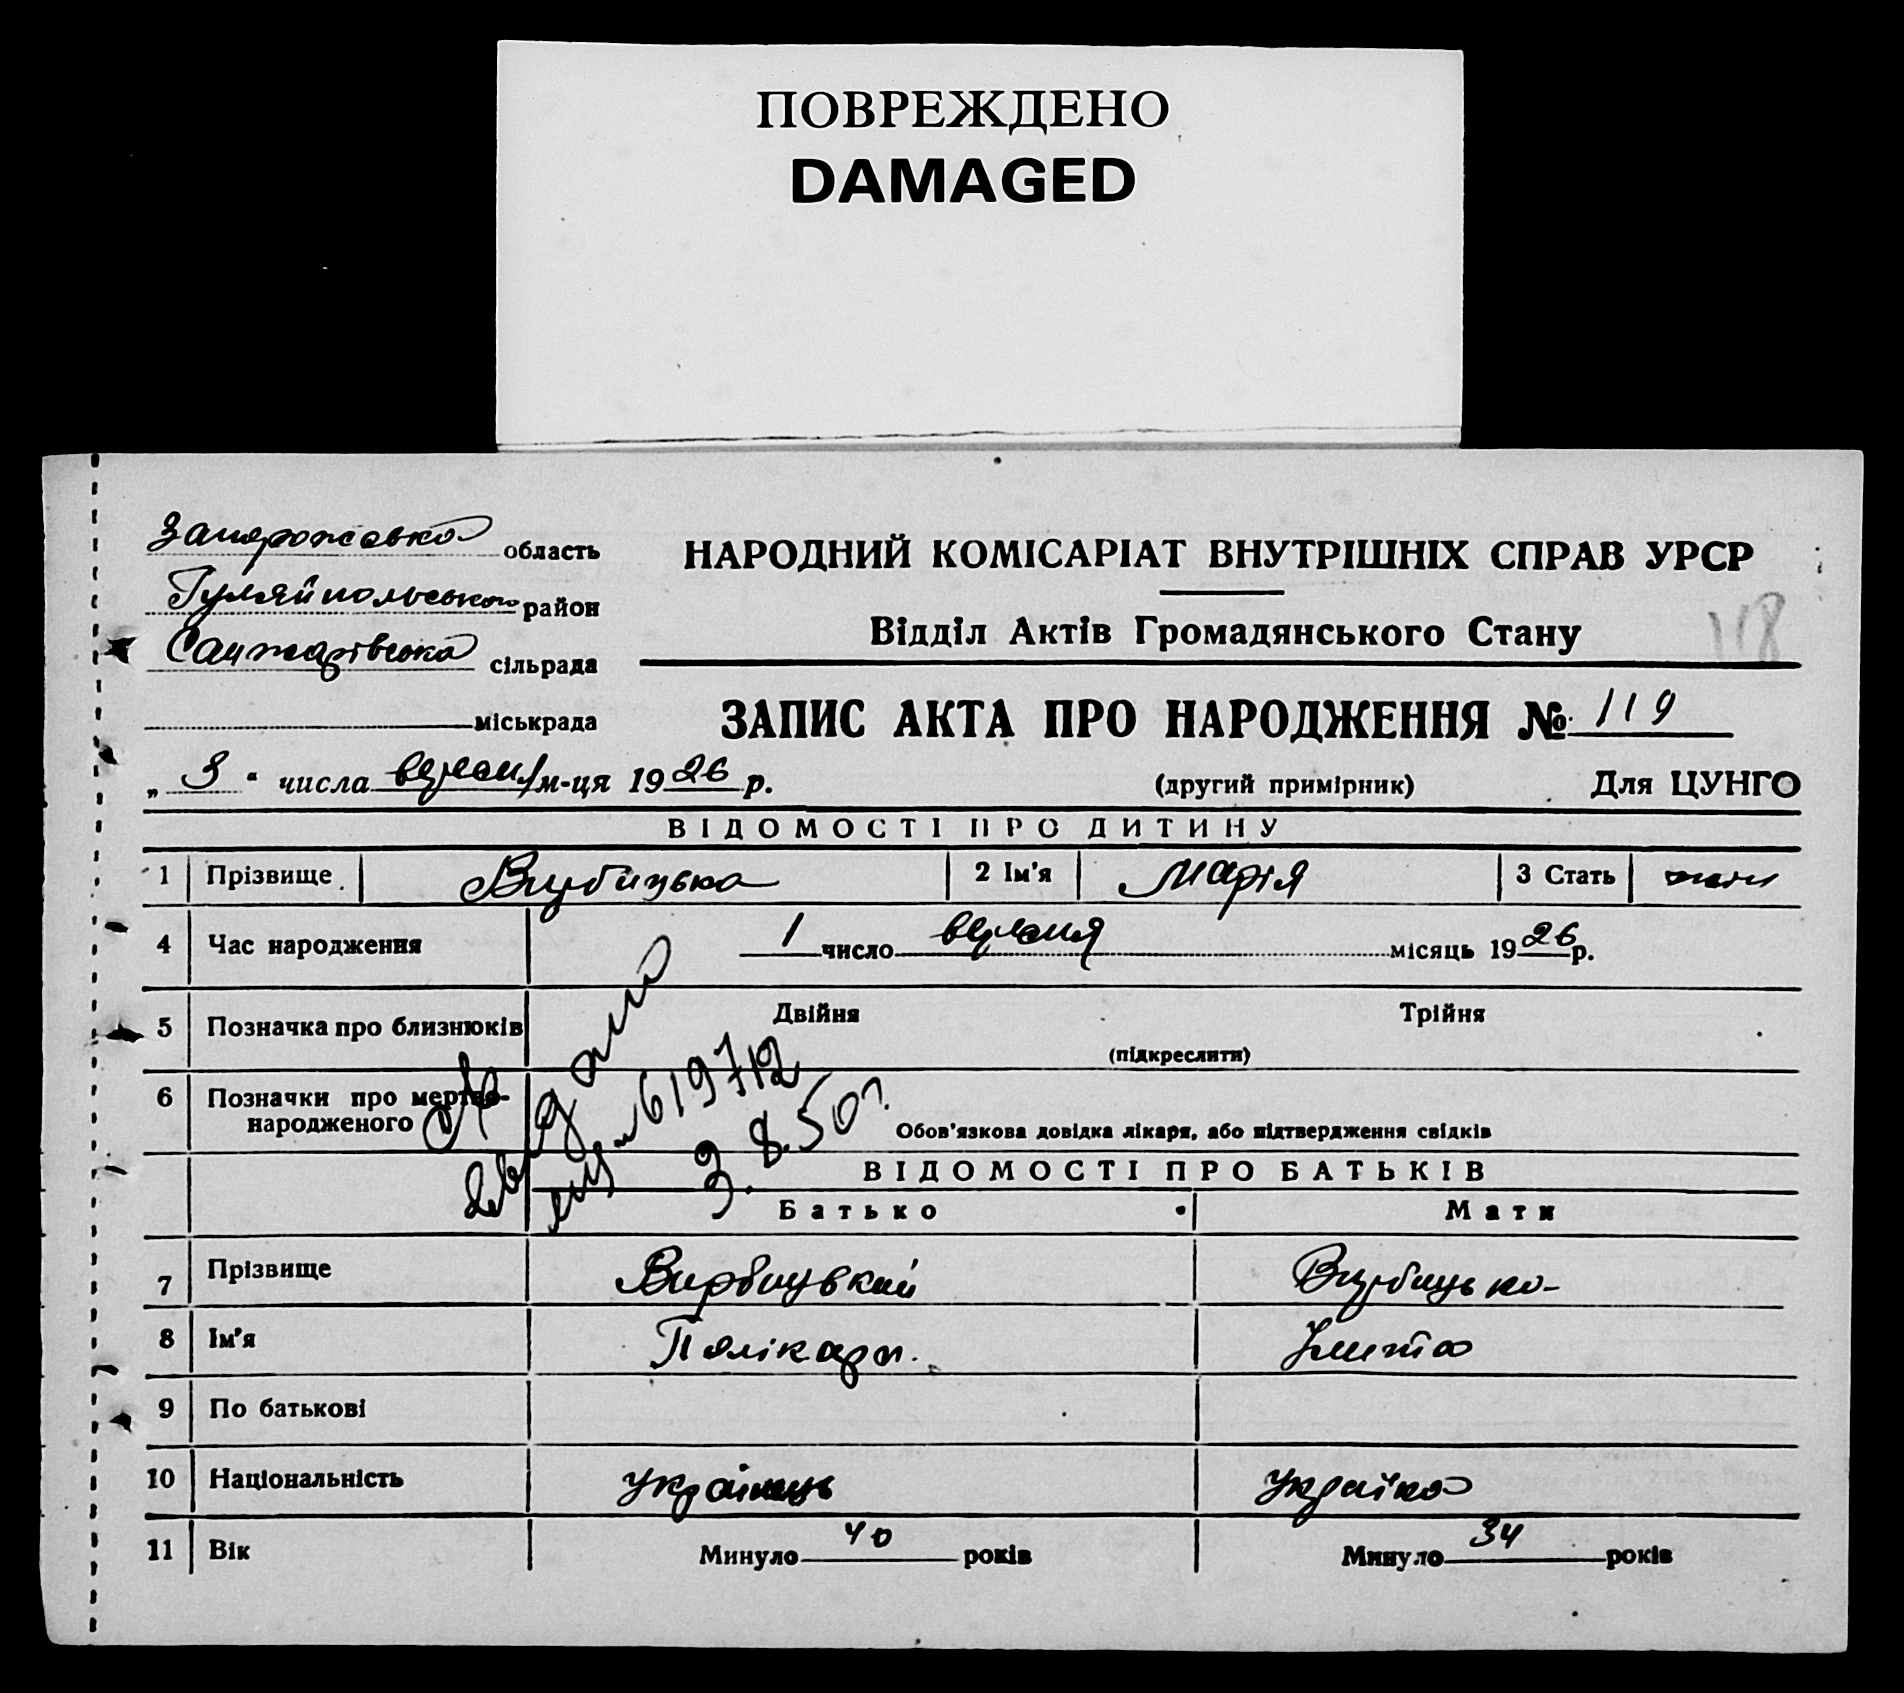 ПОВРЕЖДЕНО
DAMAGED
Запорожська область
Гуляйпольського район
Санжарівська сільрада
міськрада
НАРОДНИЙ КОМІСАРІАТ ВНУТРІШНІХ СПРАВ УРСР
Відділ Актів Громадянського Стану
118
ЗАПИС АКТА ПРО НАРОДЖЕННЯ № 119
„ 3 " числа вересня м-ця 1926 р.
(другий примірник) Для ЦУНГО
ВІДОМОСТІ ПРО ДИТИНУ
1 Прізвище Вирбицька 2 Ім'я Марія 3 Стать жін
4 Час народження 1 число вересня місяць 1926 р.
5 Позначка про близнюків Двійня Трійня
(підкреслити)
6 Позначки про мертво-
народженого
Обов'язкова довідка лікаря, або підтвердження свідків
619712
3.8.50г.
ВІДОМОСТІ ПРО БАТЬКІВ
Батько Мати
7 Прізвище Вирбицький Вирбицька
8 Ім'я Полікарп.
9 По батькові
10 Національність українець українка
11 Вік Минуло 40 років Минуло 34 років